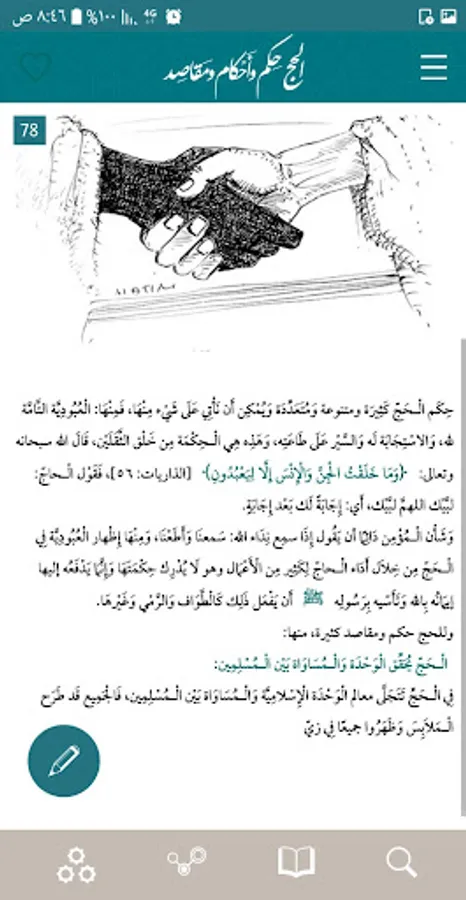 ٨:٤٦ ص ١٠٠% 4G
الحج حِكم وأحْكام ومَقاصِد
78
حِكَم الْـحَجّ كَثِيرَة ومتنوعة وَمُتَعَدِّدَة وَيُمْكِن أَن نَأْتِي عَلَى شَيْء مِنْهَا، فَمِنْهَا: الْعُبُودِيَّة التَّامَّة
لله، وَالِاسْتِجَابَة لَه وَالسَّيْر عَلَى طَاعَتِه، وَهَذِه هِي الْـحِكْمَة مِن خَلْق الثَّقَلَيْن، قَالَ الله سبحانه
وتعالى: ﴿وَمَا خَلَقْتُ الْجِنَّ وَالْإِنْسَ إِلَّا لِيَعْبُدُونِ﴾ [الذاريات: ٥٦]، فَقَوْل الْـحاجّ:
لبَّيْك اللهمَّ لبَّيْك، أي: إِجَابَةً لَك بَعْد إِجَابَةٍ.
وَشَأْن الْـمُؤْمِن دَائِمًا أَن يَقُول إِذَا سمِع نِدَاء الله: سَمعنَا وَأَطَعْنَا، وَمِنْهَا إِظْهار الْعُبُودِيَّة فِي
الْـحَجّ مِن خِلَال أَدَاء الْـحاجّ لِكَثِير مِن الْأَعْمَال وهو لَا يُدْرِك حِكْمَتَهَا وَإِنَّمَا يَدْفَعُه إليها
إِيمَانُه بِالله وَتَأَسِّيه بِرَسُولِه ﷺ أَن يَفْعَل ذَلِك كَالطَّوَاف وَالرَّمْي وَغَيْرهَا.
وللحج حكم ومقاصد كثيرة، منها:
الْـحَجّ يُحَقِّق الْوَحْدَة وَالْـمُسَاوَاة بَيْن الْـمُسْلِمِين:
فِي الْـحَجّ تَتَجَلَّى معالم الْوَحْدَة الْإِسْلَامِيَّة وَالْـمُسَاوَاة بَيْن الْـمُسْلِمِين، فَالْجَمِيع قَد طَرَح
الْـمَلَابِسَ وَظَهَرُوا جميعًا فِي زِيّ